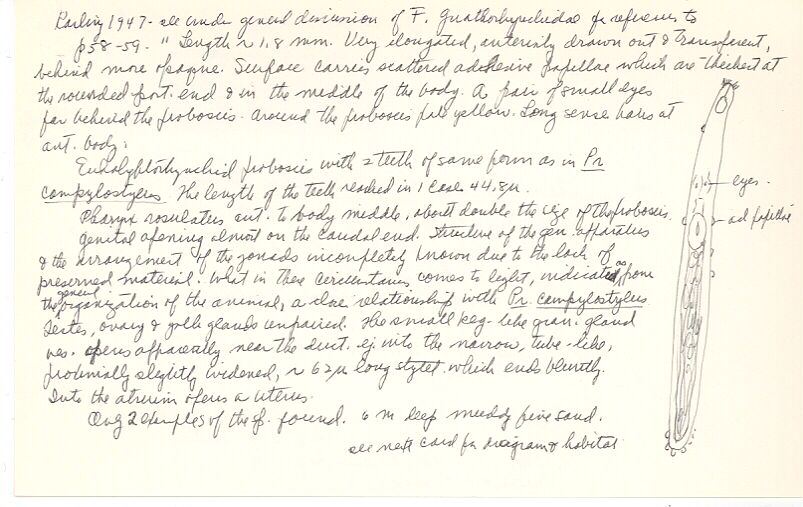 Karling 1947 - see under general discussion of F. Gnathorhynchidae for reference to
p58-59. " Length ~ 1.8 mm. Very elongated, anteriorly drawn out & transparent,
behind more opaque. Surface carries scattered adhesive papillae which are thickest at
the rounded post. end & in the middle of the body. A pair of small eyes
far behind the proboscis. Around the proboscis pale yellow. Long sense hairs at
ant. body.
Eukalyptorhynchid proboscis with 2 teeth of same form as in Pr
campylostylus. The length of the teeth reached in 1 case 44.8µ.
Pharynx rosulatus ant. to body middle, about double the size of the proboscis.
genital opening almost on the caudal end. Structure of the gen. apparatus
& the arrangement of the gonads incompletely known due to the lack of
preserved material. What in these circumstances comes to light, indicates, as from
the general organization of the animal, a close relationship with Pr. campylostylus
Testes, ovary & yolk glands unpaired. The small keg-like gran. gland
ves. opens apparently near the duct. ej into the narrow, tube-like,
proximally slightly widened, ~ 62µ long stylet which ends bluntly.
Into the atrium opens a uterus.
Only 2 examples of the sp. found. 6 m deep muddy fine sand.
see next card for diagram & habitat
eyes.
ad papillae